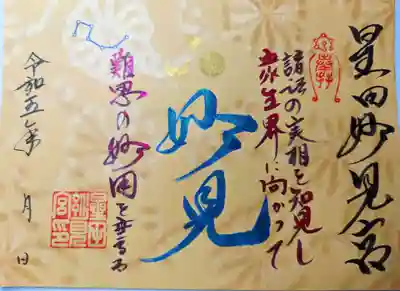 星田妙見宮
諸法の実相を知見し
衆生界に向かって
妙見
難思の妙用を垂るる
令和五年　月　日
星田
妙見
宮印